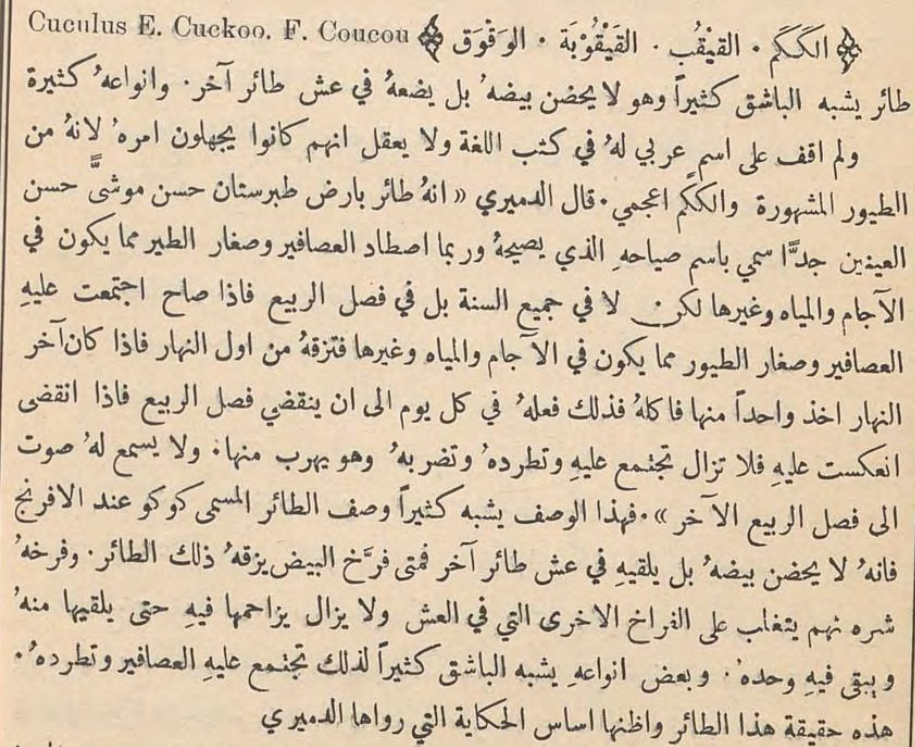 ﴿ الكَكَم ٠ القَيْقُب ٠ القَيْقُوْبَة ٠ الوَقْوَق ﴾ Cuculus E. Cuckoo. F. Coucou
طائر يشبه الباشق كثيراً وهو لا يحضن بيضهُ بل يضعهُ في عش طائر آخر ٠ وانواعهُ كثيرة
ولم اقف على اسم عربي لهُ في كتب اللغة ولا يعقل انهم كانوا يجهلون امرهُ لانهُ من
الطيور المشهورة والككم اعجمي ٠ قال الدميري « انهُ طائر بارض طبرستان حسن موشىًّ حسن
العينين جدًّا سمي باسم صياحهِ الذي يصيحهُ وربما اصطاد العصافير وصغار الطير مما يكون في
الآجام والمياه وغيرها لكن لا في جميع السنة بل في فصل الربيع فاذا صاح اجتمعت عليهِ
العصافير وصغار الطيور مما يكون في الآجام والمياه وغيرها فتزقهُ من اول النهار فاذا كان آخر
النهار اخذ واحداً منها فاكلهُ فذلك فعلهُ في كل يوم الى ان ينقضي فصل الربيع فاذا انقضى
انعكست عليهِ فلا تزال تجتمع عليهِ وتطردهُ وتضربهُ وهو يهرب منها ٠ ولا يسمع لهُ صوت
الى فصل الربيع الآخر » ٠ فهذا الوصف يشبه كثيراً وصف الطائر المسمى كوكو عند الافرنج
فانهُ لا يحضن بيضهُ بل يلقيهِ في عش طائر آخر فمتى فرَّخ البيض يزقهُ ذلك الطائر ٠ وفرخهُ
شره نهم يتغلب على الفراخ الاخرى التي في العش ولا يزال يزاحمها فيهِ حتى يلقيها منهُ
ويبقى فيهِ وحدهُ ٠ وبعض انواعهِ يشبه الباشق كثيراً لذلك تجتمع عليهِ العصافير وتطردهُ ٠
هذه حقيقة هذا الطائر واظنها اساس الحكاية التي رواها الدميري